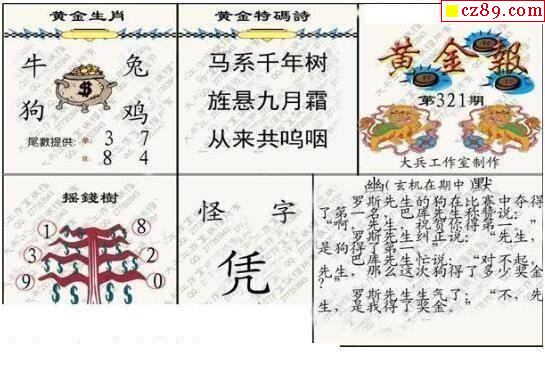 cz89.com
黄金生肖
牛 兔
狗 鸡
尾數提供: 单: 3 7
双: 8 4
黄金特碼詩
马系千年树
旌悬九月霜
从来共呜咽
黄金報
第321期
大兵工作室制作
摇錢樹
1 8
3 2
9 0
怪 字
凭
幽(玄机在期中)默
罗斯先生的狗在比赛中夺得
了第一名，巴库先生称赞说：
“啊，先生，祝贺你得第一。”
罗斯先生纠正说：“先生，
是狗得了第一”
巴库先生忙说：“对不起，
先生，那么这次狗得了多少奖金
？”
罗斯先生生气了：“不，先
生，是我得了奖金。”